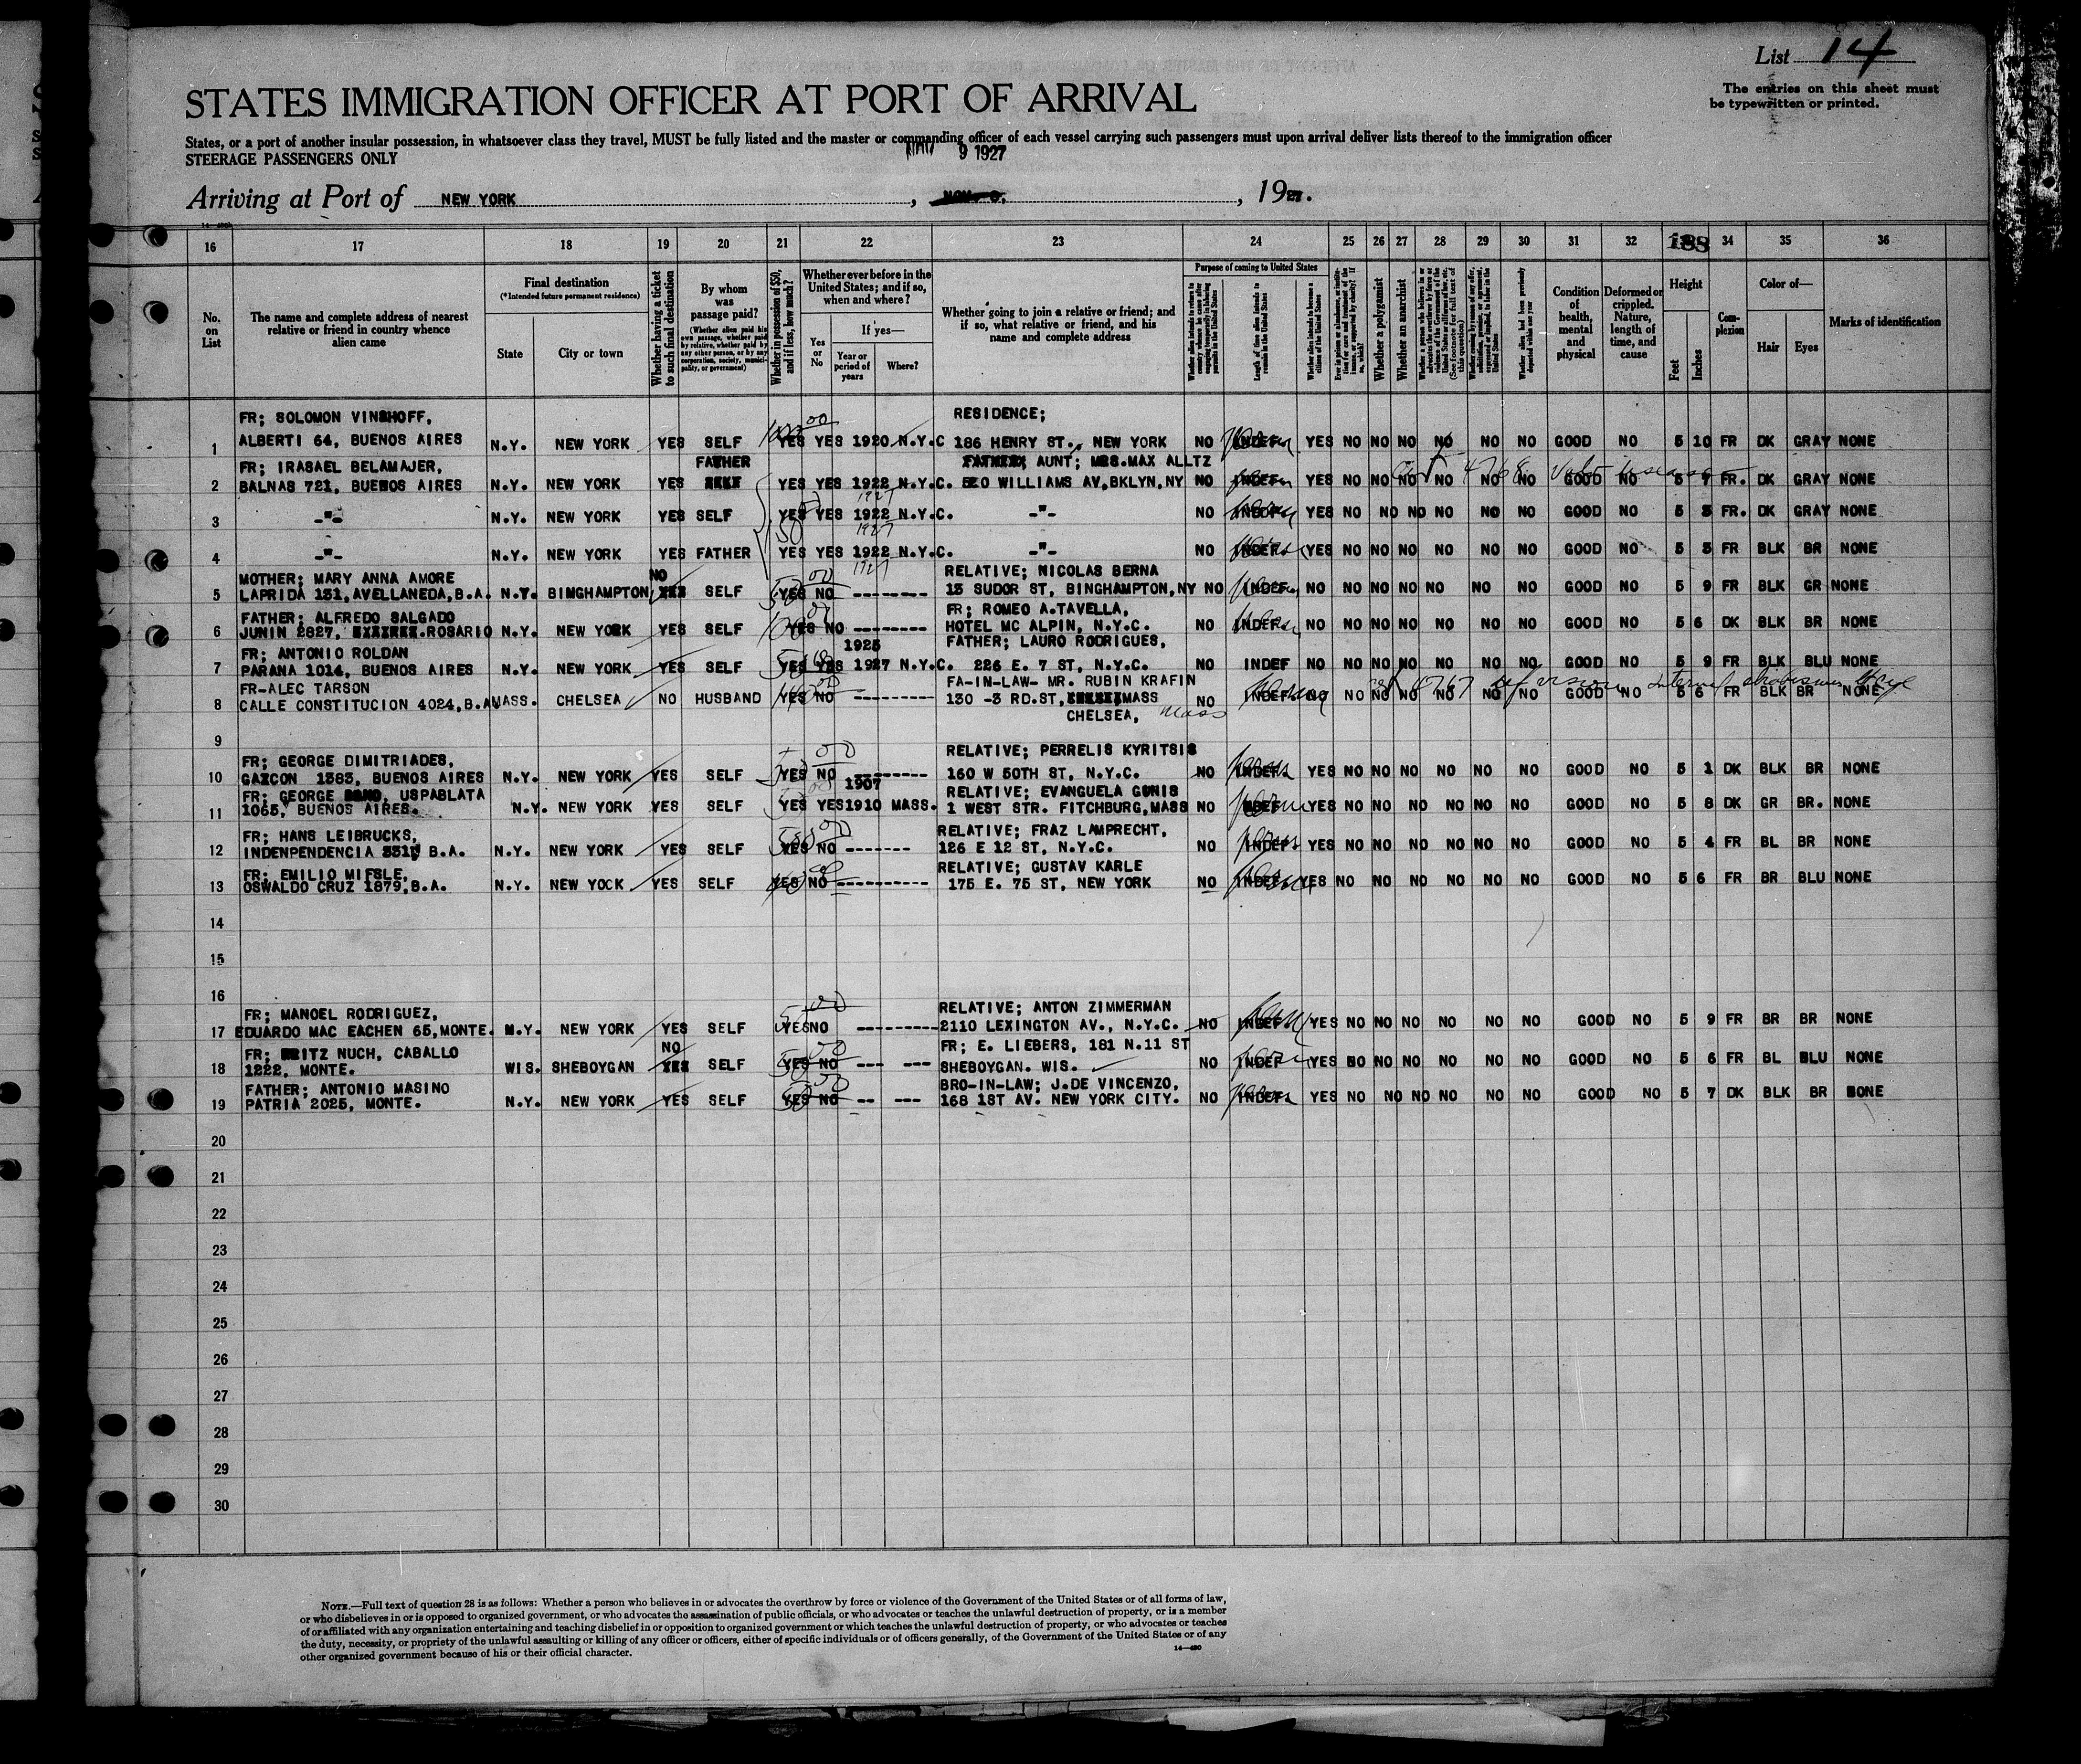 List 14
The entries on this sheet must
be typewritten or printed.
STATES IMMIGRATION OFFICER AT PORT OF ARRIVAL
States, or a port of another insular possession, in whatsoever class they travel, MUST be fully listed and the master or commanding officer of each vessel carrying such passengers must upon arrival deliver lists thereof to the immigration officer
STEERAGE PASSENGERS ONLY
9 1927
Arriving at Port of NEW YORK, , 1927.
16 17 18 19 20 21 22 23 24 25 26 27 28 29 30 31 32 34 35 36
No. on List
The name and complete address of nearest relative or friend in country whence alien came
Final destination
(*Intended future permanent residence)
State
City or town
Whether having a ticket to such final destination
By whom was passage paid?
(Whether alien paid his own passage, whether paid by relative, whether paid by any other person, or by any corporation, society, municipality, or government)
Whether in possession of $50, and if less, how much?
Whether ever before in the United States; and if so, when and where?
Yes or No
If yes—
Year or period of years
Where?
Whether going to join a relative or friend; and if so, what relative or friend, and his name and complete address
Purpose of coming to United States
Length of time alien intends to remain in the United States
Whether alien intends to become a citizen of the United States
Whether a polygamist
Whether an anarchist
Whether alien had been previously deported within one year
Condition of health, mental and physical
Deformed or crippled. Nature, length of time, and cause
Height
Feet
Inches
Complexion
Color of—
Hair
Eyes
Marks of identification
FR; SOLOMON VINSHOFF, RESIDENCE;
1 ALBERTI 64, BUENOS AIRES N.Y. NEW YORK YES SELF YES YES 1920 N.Y.C 186 HENRY ST., NEW YORK NO INDEF YES NO NO NO NO NO NO GOOD NO 5 10 FR DK GRAY NONE
FR; IRASAEL BELAMAJER, FATHER AUNT; MRS.MAX ALLTZ
2 BALNAS 721, BUENOS AIRES N.Y. NEW YORK YES YES YES 1922 N.Y.C. 520 WILLIAMS AV,BKLYN,NY NO YES NO NO NO NO NO NO GOOD NO 5 7 FR. DK GRAY NONE
1927
3 -"- N.Y. NEW YORK YES SELF YES YES 1922 N.Y.C. -"- NO INDEF YES NO NO NO NO NO NO GOOD NO 5 3 FR. DK GRAY NONE
1927
4 -"- N.Y. NEW YORK YES FATHER YES YES 1922 N.Y.C. -"- NO INDEF YES NO NO NO NO NO NO GOOD NO 5 3 FR BLK BR NONE
1927
MOTHER; MARY ANNA AMORE NO RELATIVE; NICOLAS BERNA
5 LAPRIDA 151,AVELLANEDA,B.A. N.Y. BINGHAMPTON YES SELF YES NO -------- 15 SUDOR ST, BINGHAMPTON,NY NO INDEF NO NO NO NO NO NO NO GOOD NO 5 9 FR BLK GR NONE
FATHER; ALFREDO SALGADO FR; ROMEO A.TAVELLA,
6 JUNIN 2827, ROSARIO N.Y. NEW YORK YES SELF YES NO -------- HOTEL MC ALPIN, N.Y.C. NO INDEF NO NO NO NO NO NO NO GOOD NO 5 6 DK BLK BR NONE
FR; ANTONIO ROLDAN 1925 FATHER; LAURO RODRIGUES,
7 PARANA 1014, BUENOS AIRES N.Y. NEW YORK YES SELF YES YES 1927 N.Y.C. 226 E. 7 ST, N.Y.C. NO INDEF NO NO NO NO NO NO NO GOOD NO 5 9 FR BLK BLU NONE
FR-ALEC TARSON FA-IN-LAW- MR. RUBIN KRAFIN
8 CALLE CONSTITUCION 4024,B.A MASS. CHELSEA NO HUSBAND YES NO -------- 130 -3 RD.ST, MASS NO INDEF NO NO NO NO NO NO GOOD NO 5 6 FR BLK BR NONE
CHELSEA, Mass
9
FR; GEORGE DIMITRIADES, RELATIVE; PERRELIS KYRITSIS
10 GAZCON 1383, BUENOS AIRES N.Y. NEW YORK YES SELF YES NO -------- 160 W 50TH ST, N.Y.C. NO INDEF YES NO NO NO NO NO NO GOOD NO 5 1 DK BLK BR NONE
FR; GEORGE USPABLATA 1907 RELATIVE; EVANGUELA GUNIS
11 1065, BUENOS AIRES. N.Y. NEW YORK YES SELF YES YES 1910 MASS. 1 WEST STR. FITCHBURG,MASS NO INDEF YES NO NO NO NO NO NO GOOD NO 5 8 DK GR BR. NONE
FR; HANS LEIBRUCKS, RELATIVE; FRAZ LAMPRECHT,
12 INDENPENDENCIA B.A. N.Y. NEW YORK YES SELF YES NO ------- 126 E 12 ST, N.Y.C. NO INDEF YES NO NO NO NO NO NO GOOD NO 5 4 FR BL BR NONE
FR; EMILIO MIFSLE, RELATIVE; GUSTAV KARLE
13 OSWALDO CRUZ 1879,B.A. N.Y. NEW YOCK YES SELF YES NO ---------- 175 E. 75 ST, NEW YORK NO INDEF YES NO NO NO NO NO NO GOOD NO 5 6 FR BR BLU NONE
14
15
16
FR; MANOEL RODRIGUEZ, RELATIVE; ANTON ZIMMERMAN
17 EDUARDO MAC EACHEN 65,MONTE. N.Y. NEW YORK YES SELF YES NO --------- 2110 LEXINGTON AV., N.Y.C. NO INDEF YES NO NO NO NO NO NO GOOD NO 5 9 FR BR BR NONE
FR; FRITZ NUCH, CABALLO NO FR; E. LIEBERS, 181 N.11 ST
18 1222, MONTE. WIS. SHEBOYGAN YES SELF YES NO --- --- SHEBOYGAN. WIS. NO INDEF YES NO NO NO NO NO NO GOOD NO 5 6 FR BL BLU NONE
FATHER; ANTONIO MASINO BRO-IN-LAW; J.DE VINCENZO,
19 PATRIA 2025, MONTE. N.Y. NEW YORK YES SELF YES NO -- --- 168 1ST AV. NEW YORK CITY. NO INDEF YES NO NO NO NO NO NO GOOD NO 5 7 DK BLK BR NONE
20
21
22
23
24
25
26
27
28
29
30
NOTE.—Full text of question 28 is as follows: Whether a person who believes in or advocates the overthrow by force or violence of the Government of the United States or of all forms of law,
or who disbelieves in or is opposed to organized government, or who advocates the assassination of public officials, or who advocates or teaches the unlawful destruction of property, or is a member
of or affiliated with any organization entertaining and teaching disbelief in or opposition to organized government or which teaches the unlawful destruction of property, or who advocates or teaches
the duty, necessity, or propriety of the unlawful assaulting or killing of any officer or officers, either of specific individuals or of officers generally, of the Government of the United States or of any
other organized government because of his or their official character.
14—430